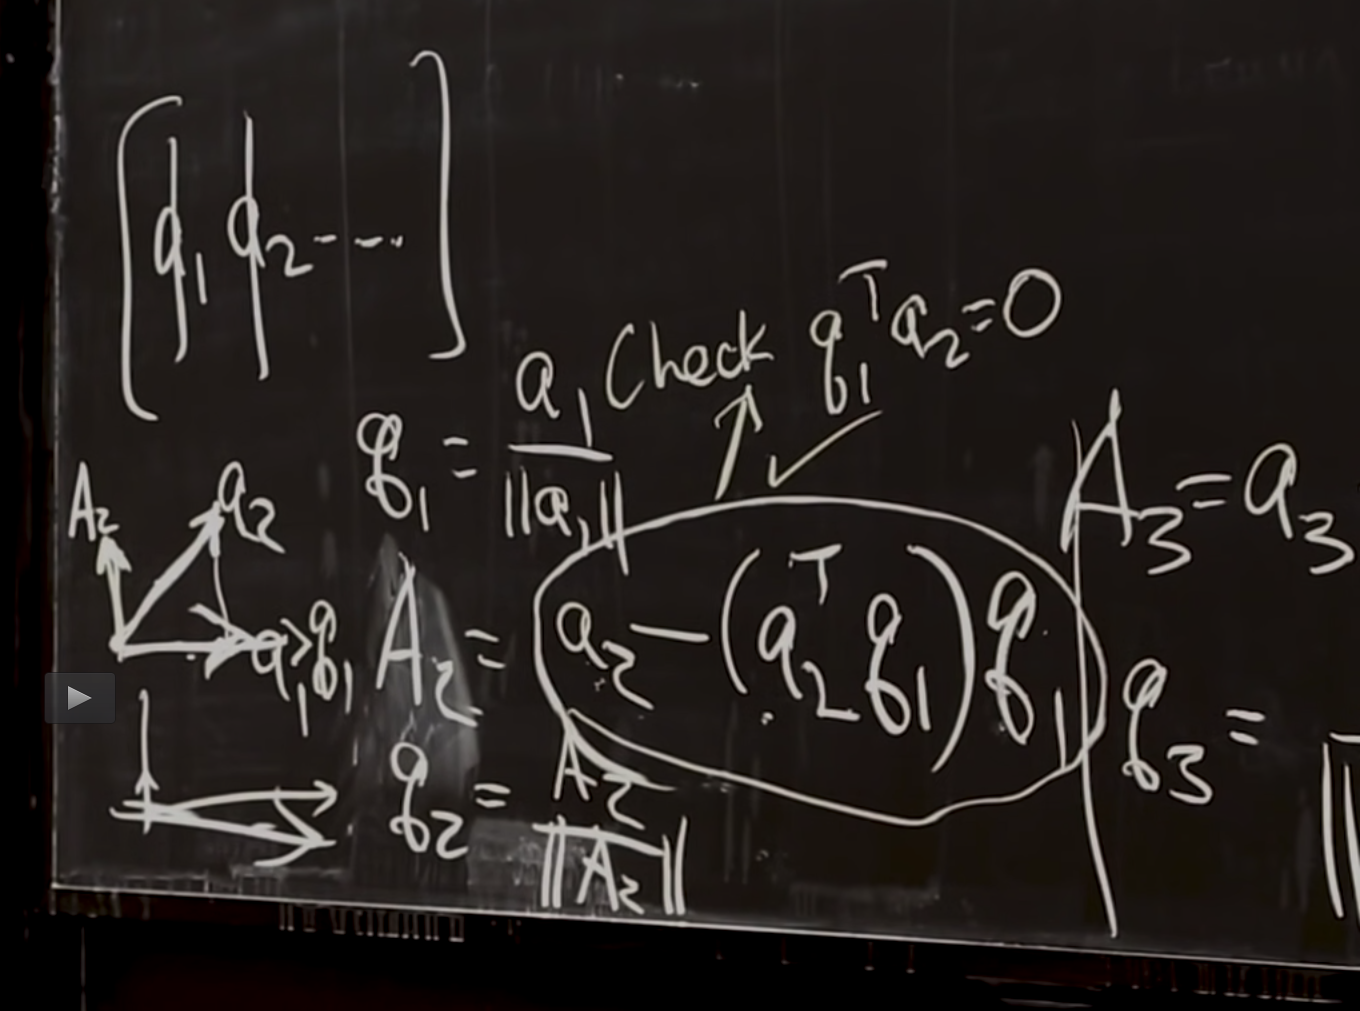 [q₁ q₂ ----]
Check q₁ᵀ a₂ = 0
q₁ = a₁ / ||a₁||
A₂ a₂ a₁ q₁
A₂ = a₂ — (a₂ᵀ q₁) q₁
q₂ = A₂ / ||A₂||
A₃ = a₃
q₃ =